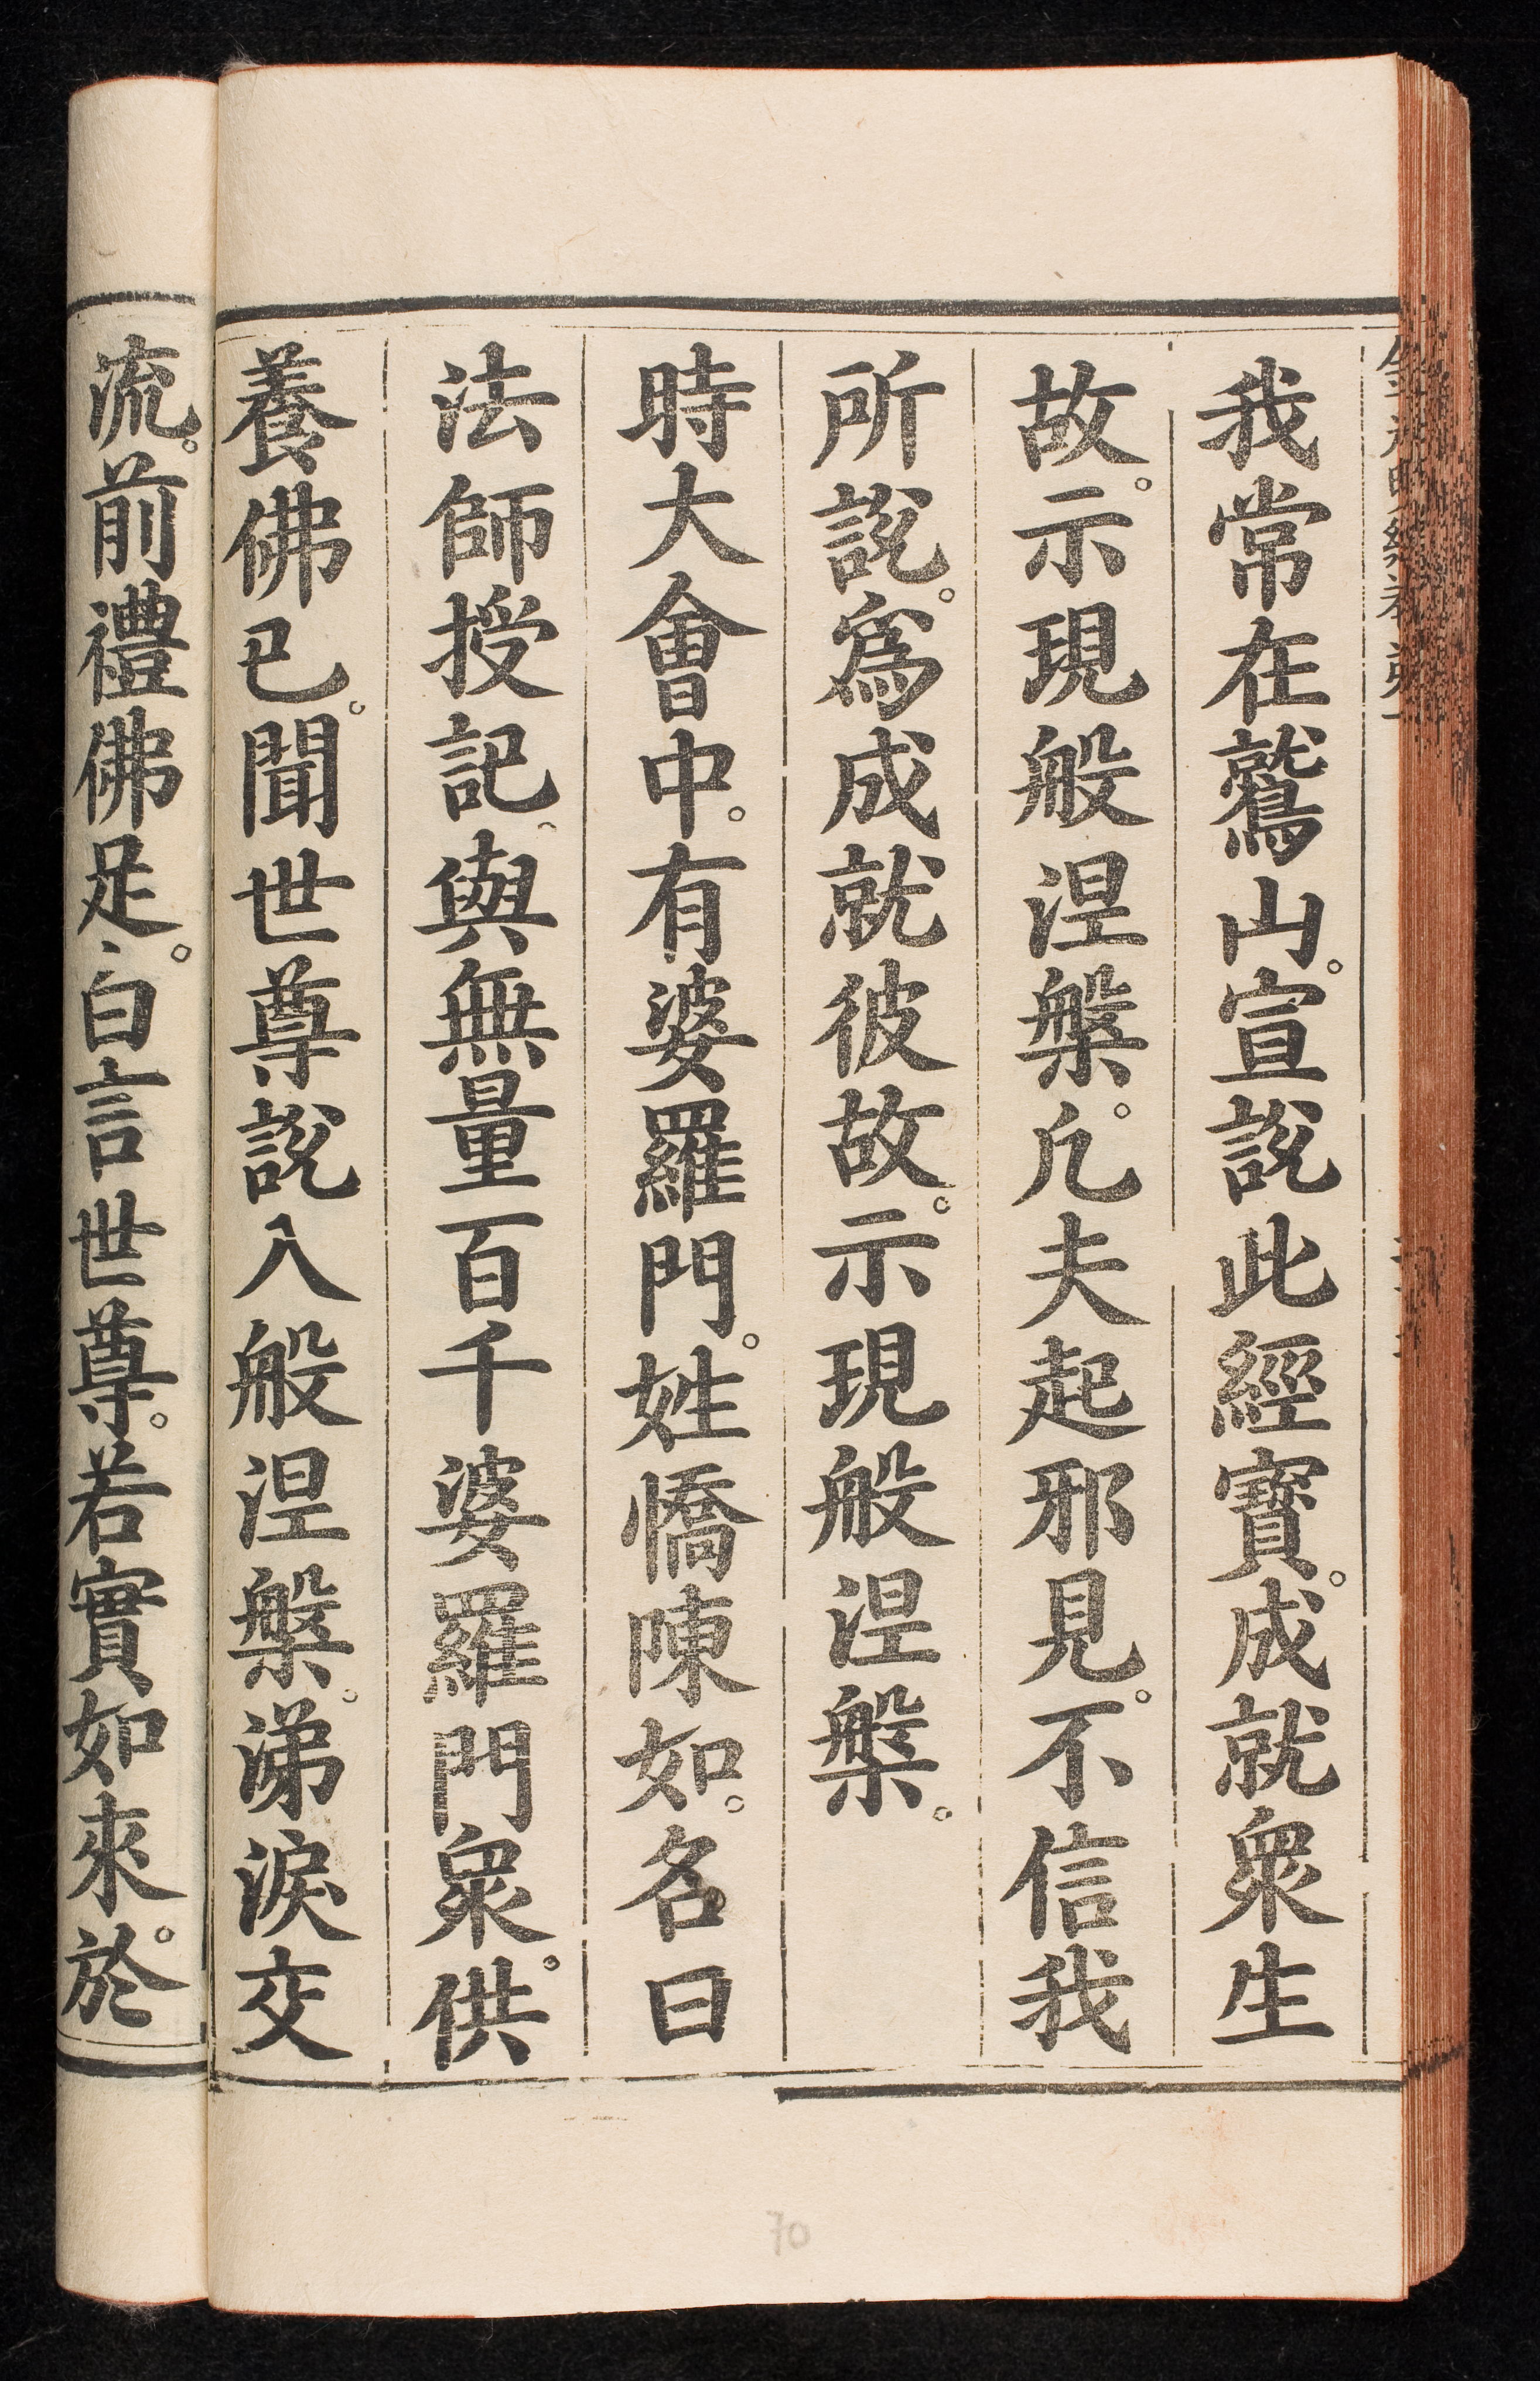 我常在鷲山。宣說此經寶。成就衆生
故。示現般涅槃。凡夫起邪見。不信我
所說。爲成就彼故。示現般涅槃。
時大會中。有婆羅門。姓憍陳如。名曰
法師授記。與無量百千婆羅門衆。供
養佛已。聞世尊說入般涅槃。涕淚交
流。前禮佛足。白言世尊。若實如來。於
70